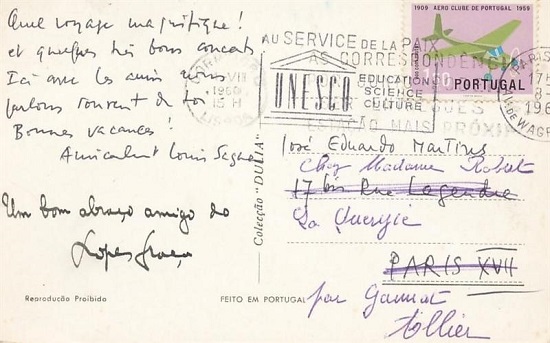 Quel voyage magnifique!
et quelques très bons concerts
Ici avec les amis nous
parlons souvent de toi
Bonnes vacances!
Amicalement Louis Saguer
Um bom abraço amigo do
Lopes Graça
Reprodução Proibida
FEITO EM PORTUGAL
Colecção "DULIA"
1909 AERO CLUBE DE PORTUGAL 1959
PORTUGAL
AU SERVICE DE LA PAIX
UNESCO
EDUCATION
SCIENCE
CULTURE
AS CORRESPONDÊN
MAIS PRÓXI
1960
15 H
PARIS
17 H
8-
196
R. DE WAG
José Eduardo Martins
Chez Madame Robert
17 bis Rue Legendre
La Queyrie
PARIS XVII
par Gannat
Allier